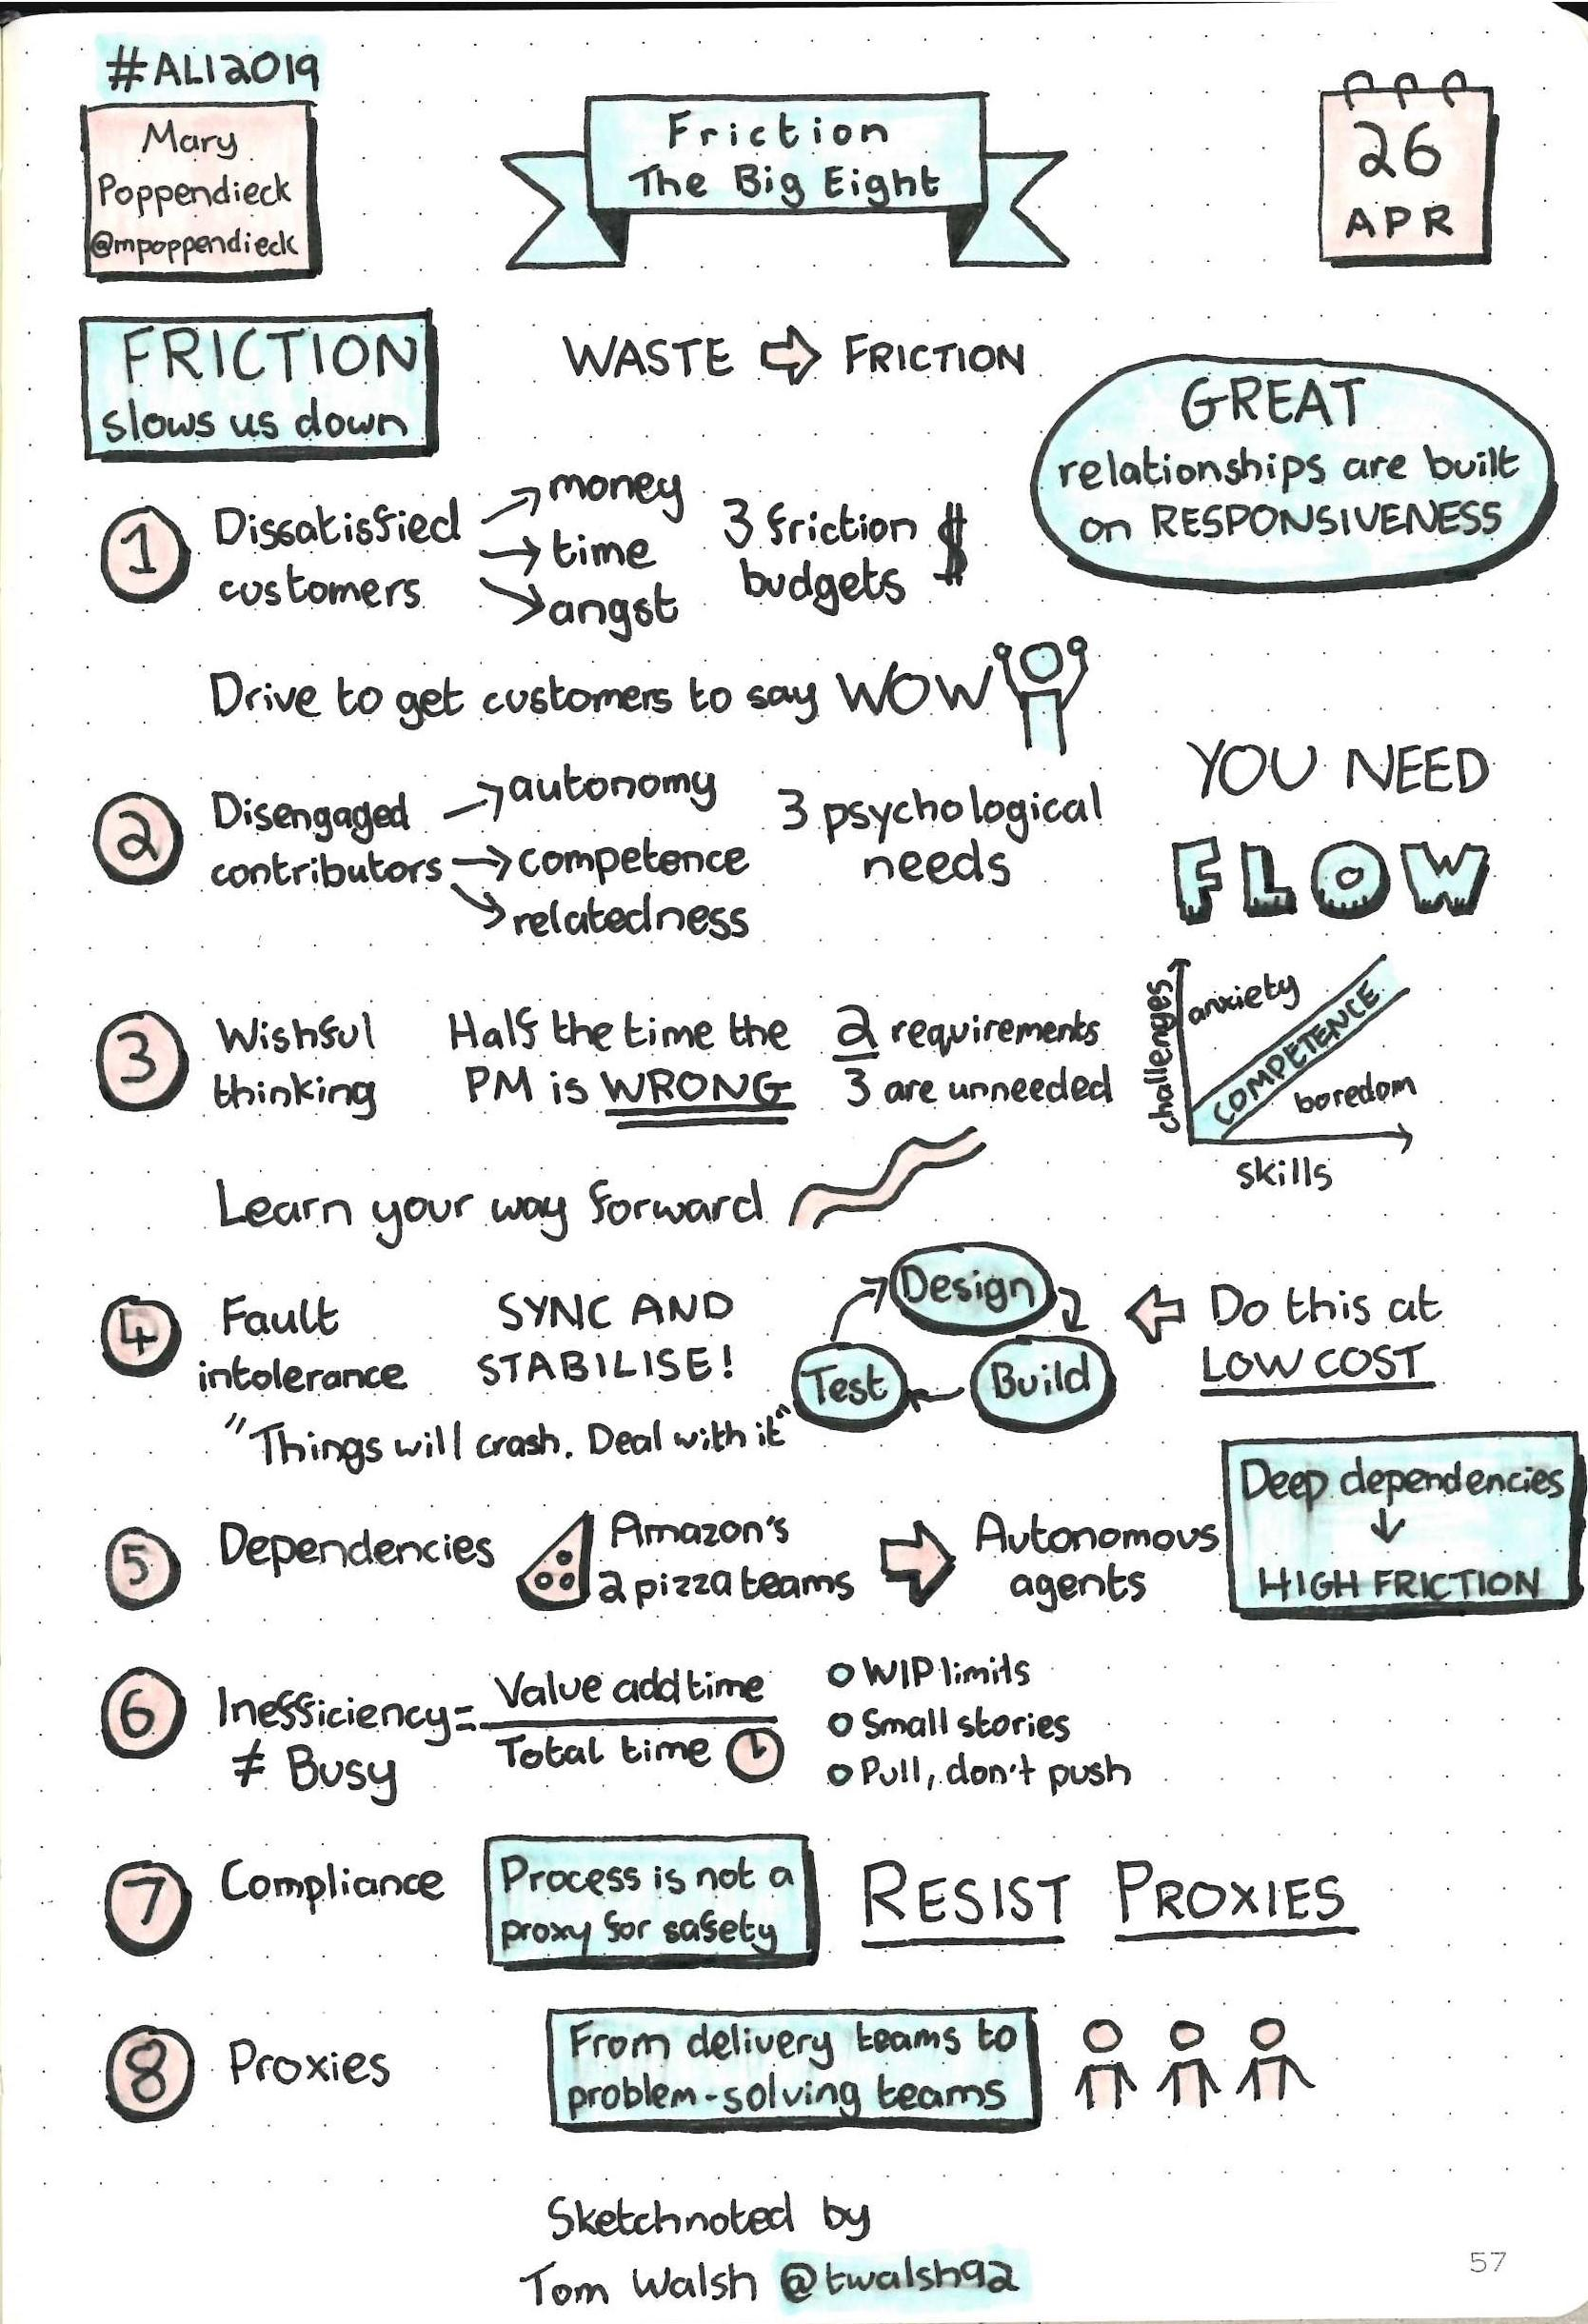 #ALI2019
Mary
Poppendieck
@mpoppendieck
Friction
The Big Eight
26
APR
FRICTION
slows us down
WASTE ⇨ FRICTION
GREAT
relationships are built
on RESPONSIVENESS
1
Dissatisfied
customers
→ money
→ time
→ angst
3 friction
budgets $
Drive to get customers to say WOW
2
Disengaged
contributors
→ autonomy
→ competence
→ relatedness
3 psychological
needs
YOU NEED
FLOW
challenges
anxiety
COMPETENCE
boredom
skills
3
Wishful
thinking
Half the time the
PM is WRONG
2/3 requirements
are unneeded
Learn your way forward
4
Fault
intolerance
SYNC AND
STABILISE!
"Things will crash. Deal with it"
Design
Build
Test
Do this at
LOW COST
5
Dependencies
Amazon's
2 pizza teams
Autonomous
agents
Deep dependencies
↓
HIGH FRICTION
6
Inefficiency =
≠ Busy
Value add time
Total time
WIP limits
Small stories
Pull, don't push
7
Compliance
Process is not a
proxy for safety
RESIST PROXIES
8
Proxies
From delivery teams to
problem-solving teams
Sketchnoted by
Tom Walsh @twalsh92
57